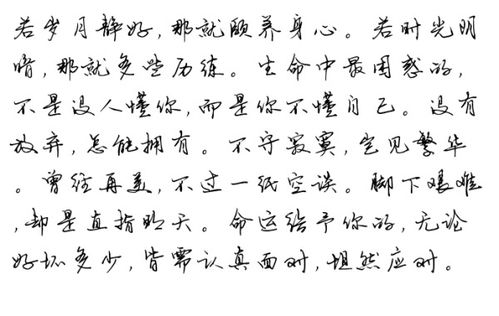 若岁月静好，那就颐养身心。若时光明
暗，那就多些历练。生命中最困惑的，
不是没人懂你，而是你不懂自己。没有
放弃，怎能拥有。不守寂寞，岂见繁华
。曾经再美，不过一纸空谈。脚下艰难
，却是直指明天。命运给予你的，无论
好坏多少，皆需认真面对，坦然应对。